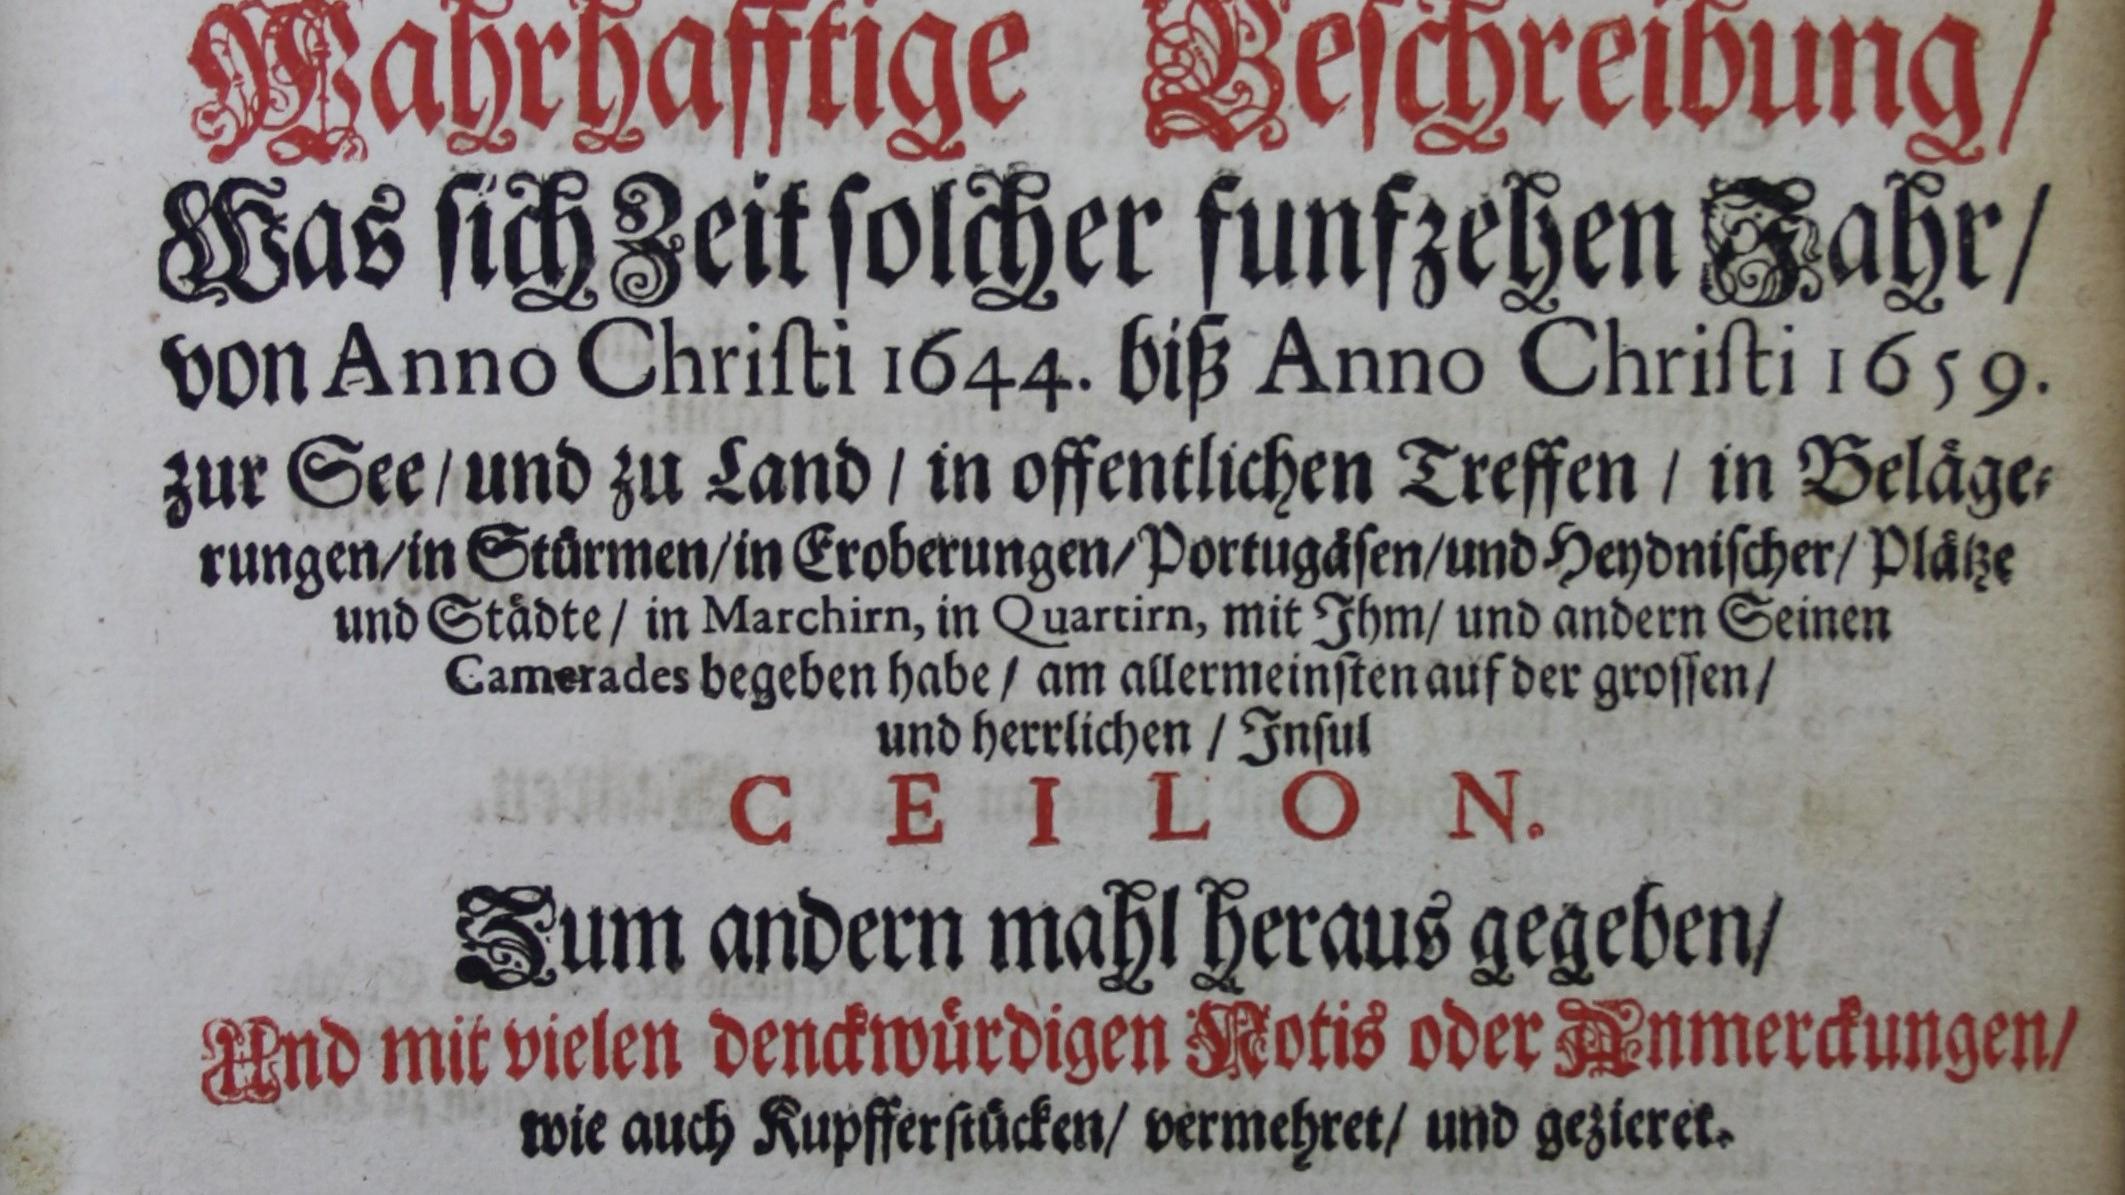 Wahrhafftige Beschreibung/
Was sich Zeit solcher funfzehen Jahr/
von Anno Christi 1644. biß Anno Christi 1659.
zur See/ und zu Land/ in offentlichen Treffen/ in Beläge-
rungen/ in Stürmen/ in Eroberungen/ Portugäsen/ und Heydnischer/ Plätze
und Städte/ in Marchirn, in Quartirn, mit Ihm/ und andern Seinen
Camerades begeben habe/ am allermeinsten auf der grossen/
und herrlichen/ Insul
CEILON.
Zum andern mahl heraus gegeben/
Und mit vielen denckwürdigen Notis oder Anmerckungen/
wie auch Kupfferstücken/ vermehret/ und gezieret.